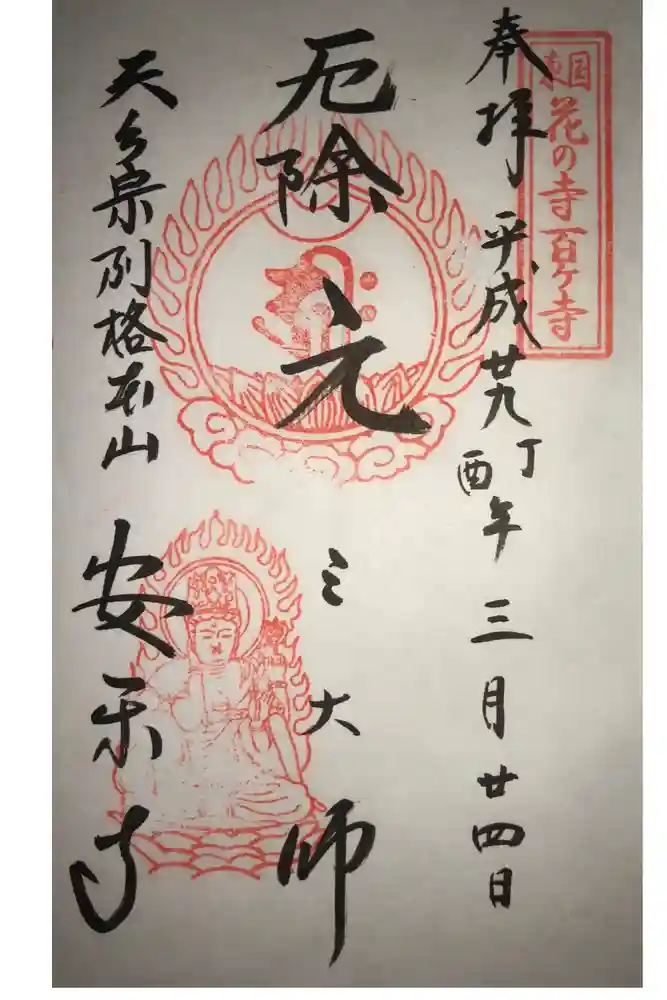 東国花の寺百ヶ寺
奉拝 平成廿九丁酉年 三月廿四日
厄除元三大師
天台宗別格本山
安楽寺